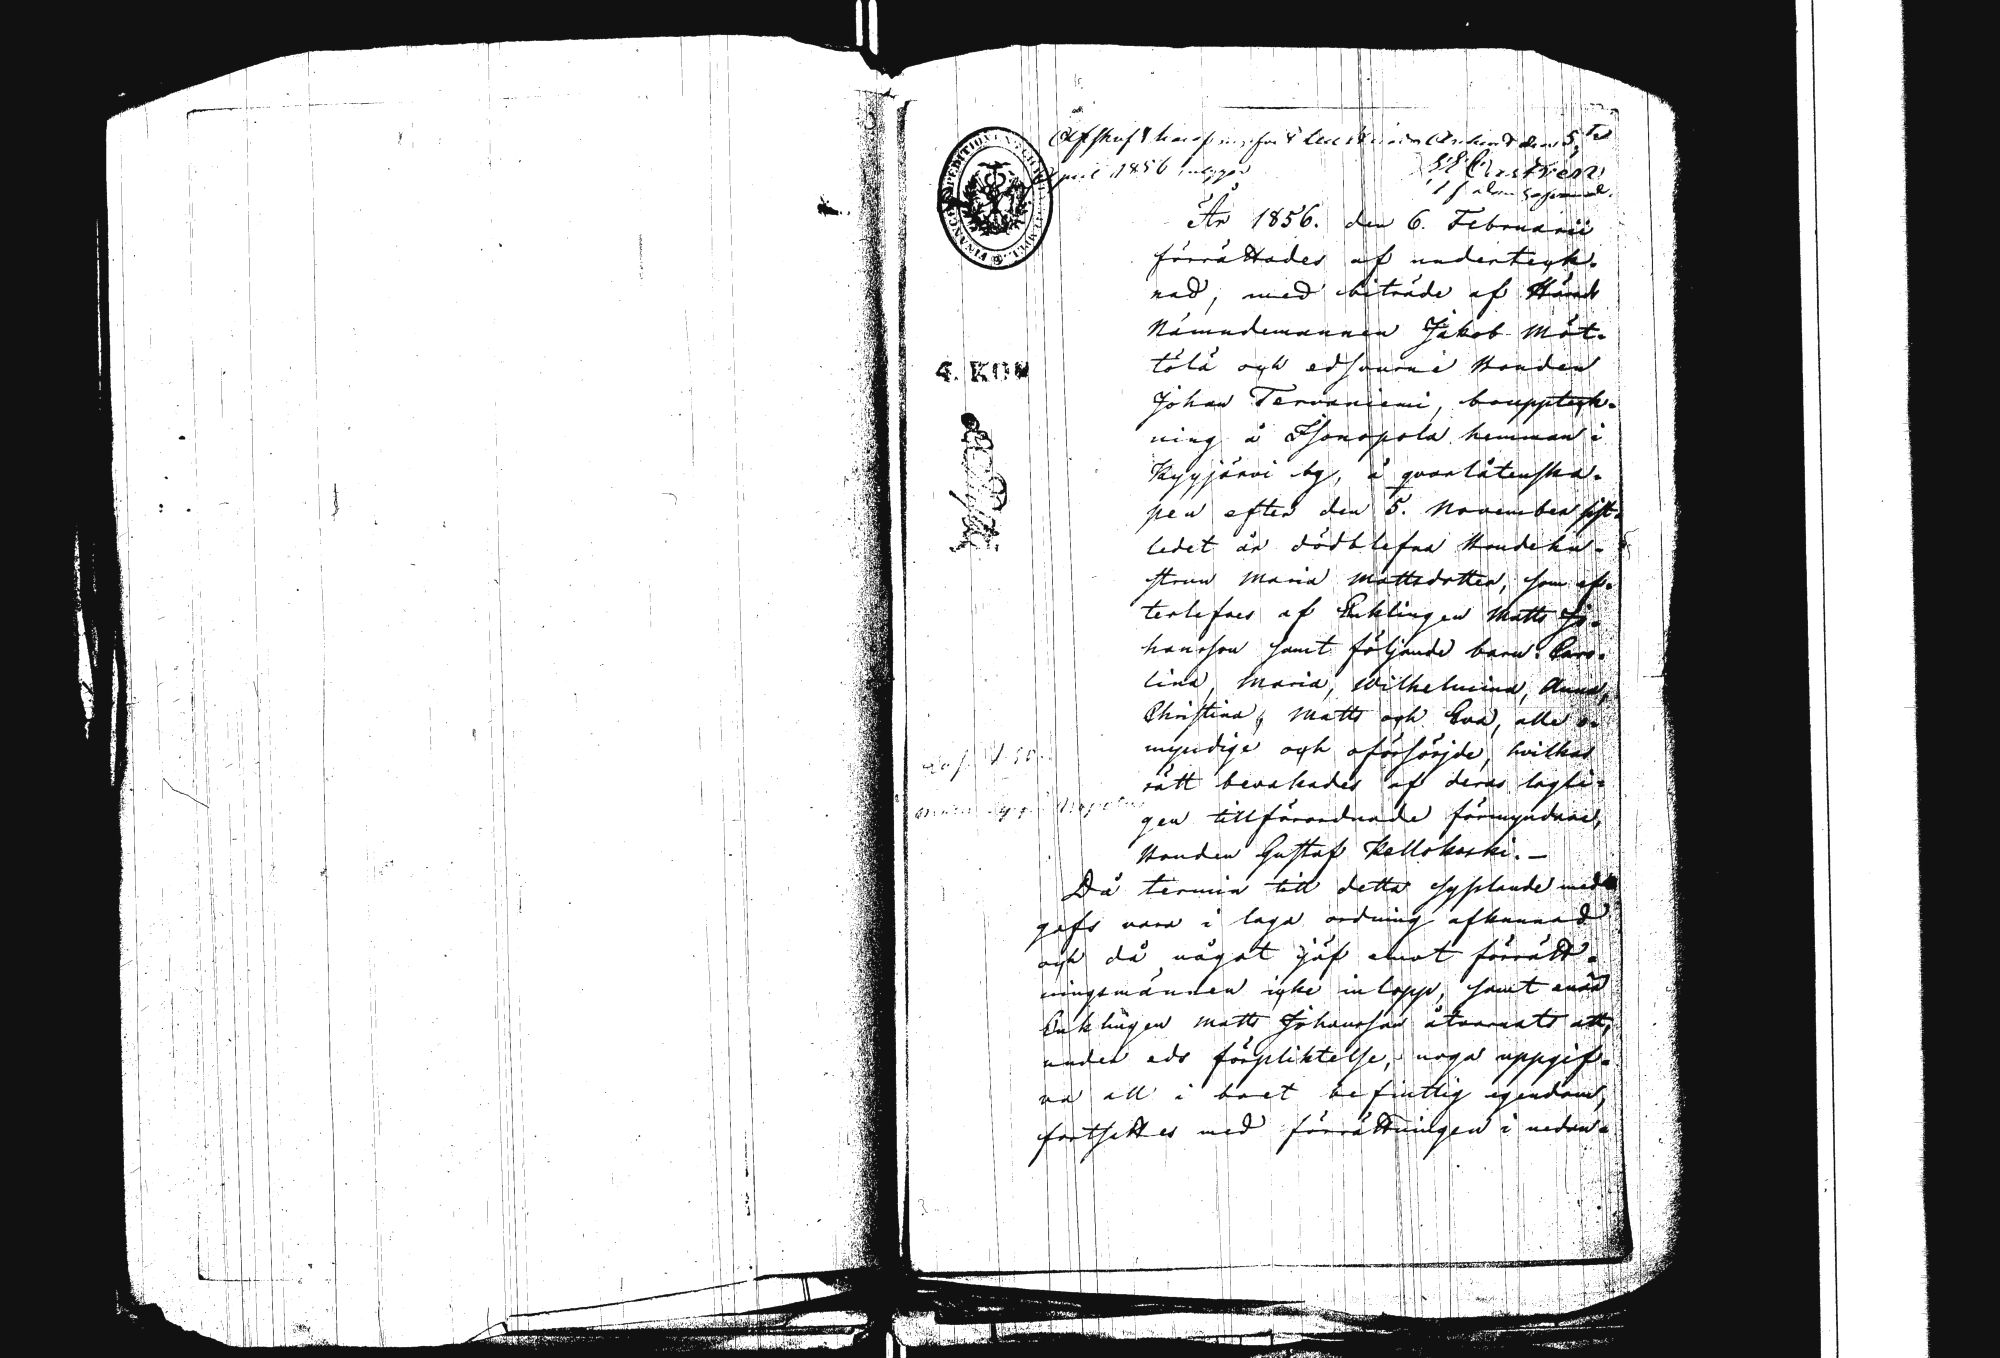 April 1856
År 1856. den 6. Februarii
förrättades af underteck-
nad, med biträde af Härads
Nämndemannen Jakob Möt-
tölä och edsvurne Bonden
Johan Tervaniemi, bouppteck-
ning å Isonopola hemman i
Kyyjärvi by, å qvarlåtenska-
pen efter den 5. November sist-
ledet år dödblefna Bondehu-
strun Maria Mattsdotter, som ef-
terlefves af Enklingen Matts Jo-
hansson samt följande barn: Caro-
lina, Maria, Wilhelmina, Anna,
Christina, Matts och Eva, alle o-
myndige och oförsörjde, hvilkas
rätt bevakades af deras lagli-
gen tillförordnade förmyndare,
Bonden Gustaf Kellokoski. —
Då termin till detta syslande med
gafs vara i laga ordning afkunnad
och då något jäf emot förrätt-
ningsmännen icke inlopp, samt
Enklingen Matts Johansson åtvarnats att,
under eds förpliktelse, noga uppgif-
va all i boet befintlig egendom,
fortsattes med förrättningen i nedan-
4. KOP